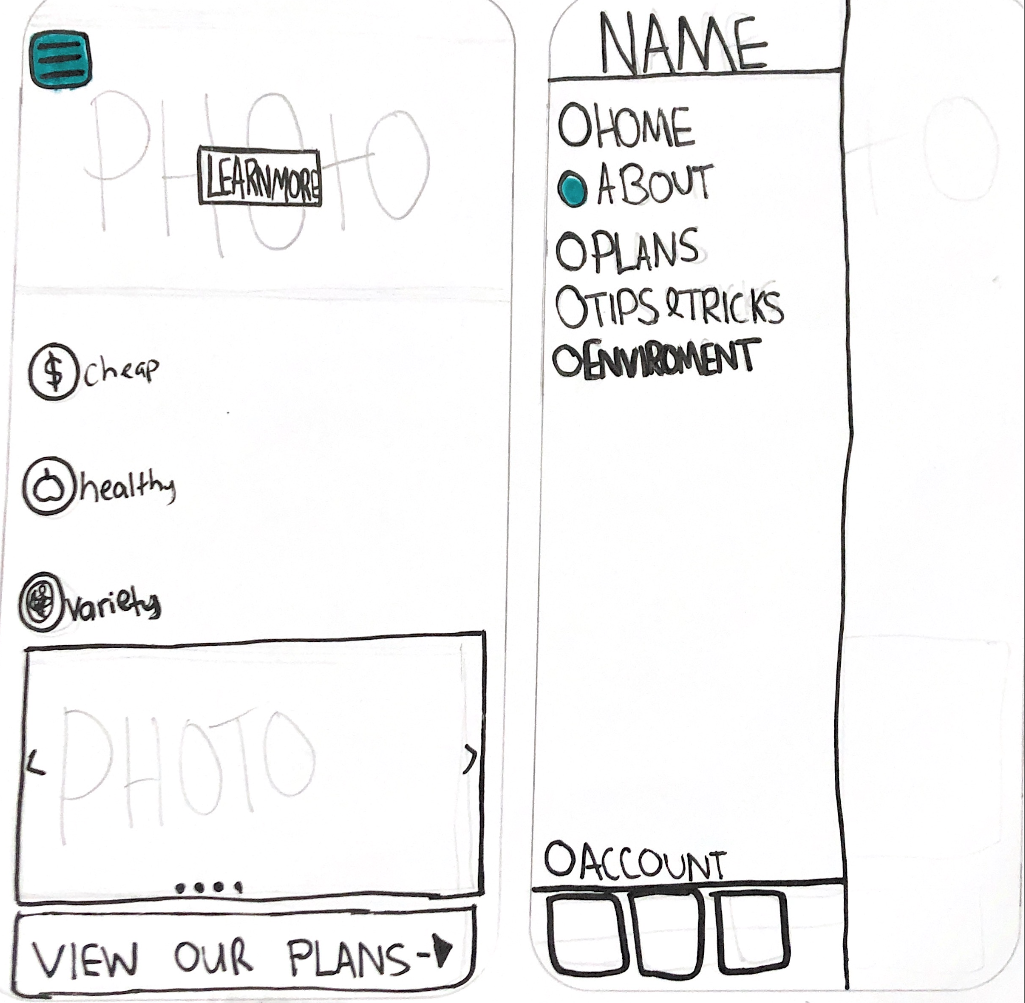 PHOTO
LEARN MORE
$
cheap
healthy
variety
PHOTO
< >
VIEW OUR PLANS
NAME
HOME
ABOUT
PLANS
TIPS & TRICKS
ENVIROMENT
ACCOUNT
TO